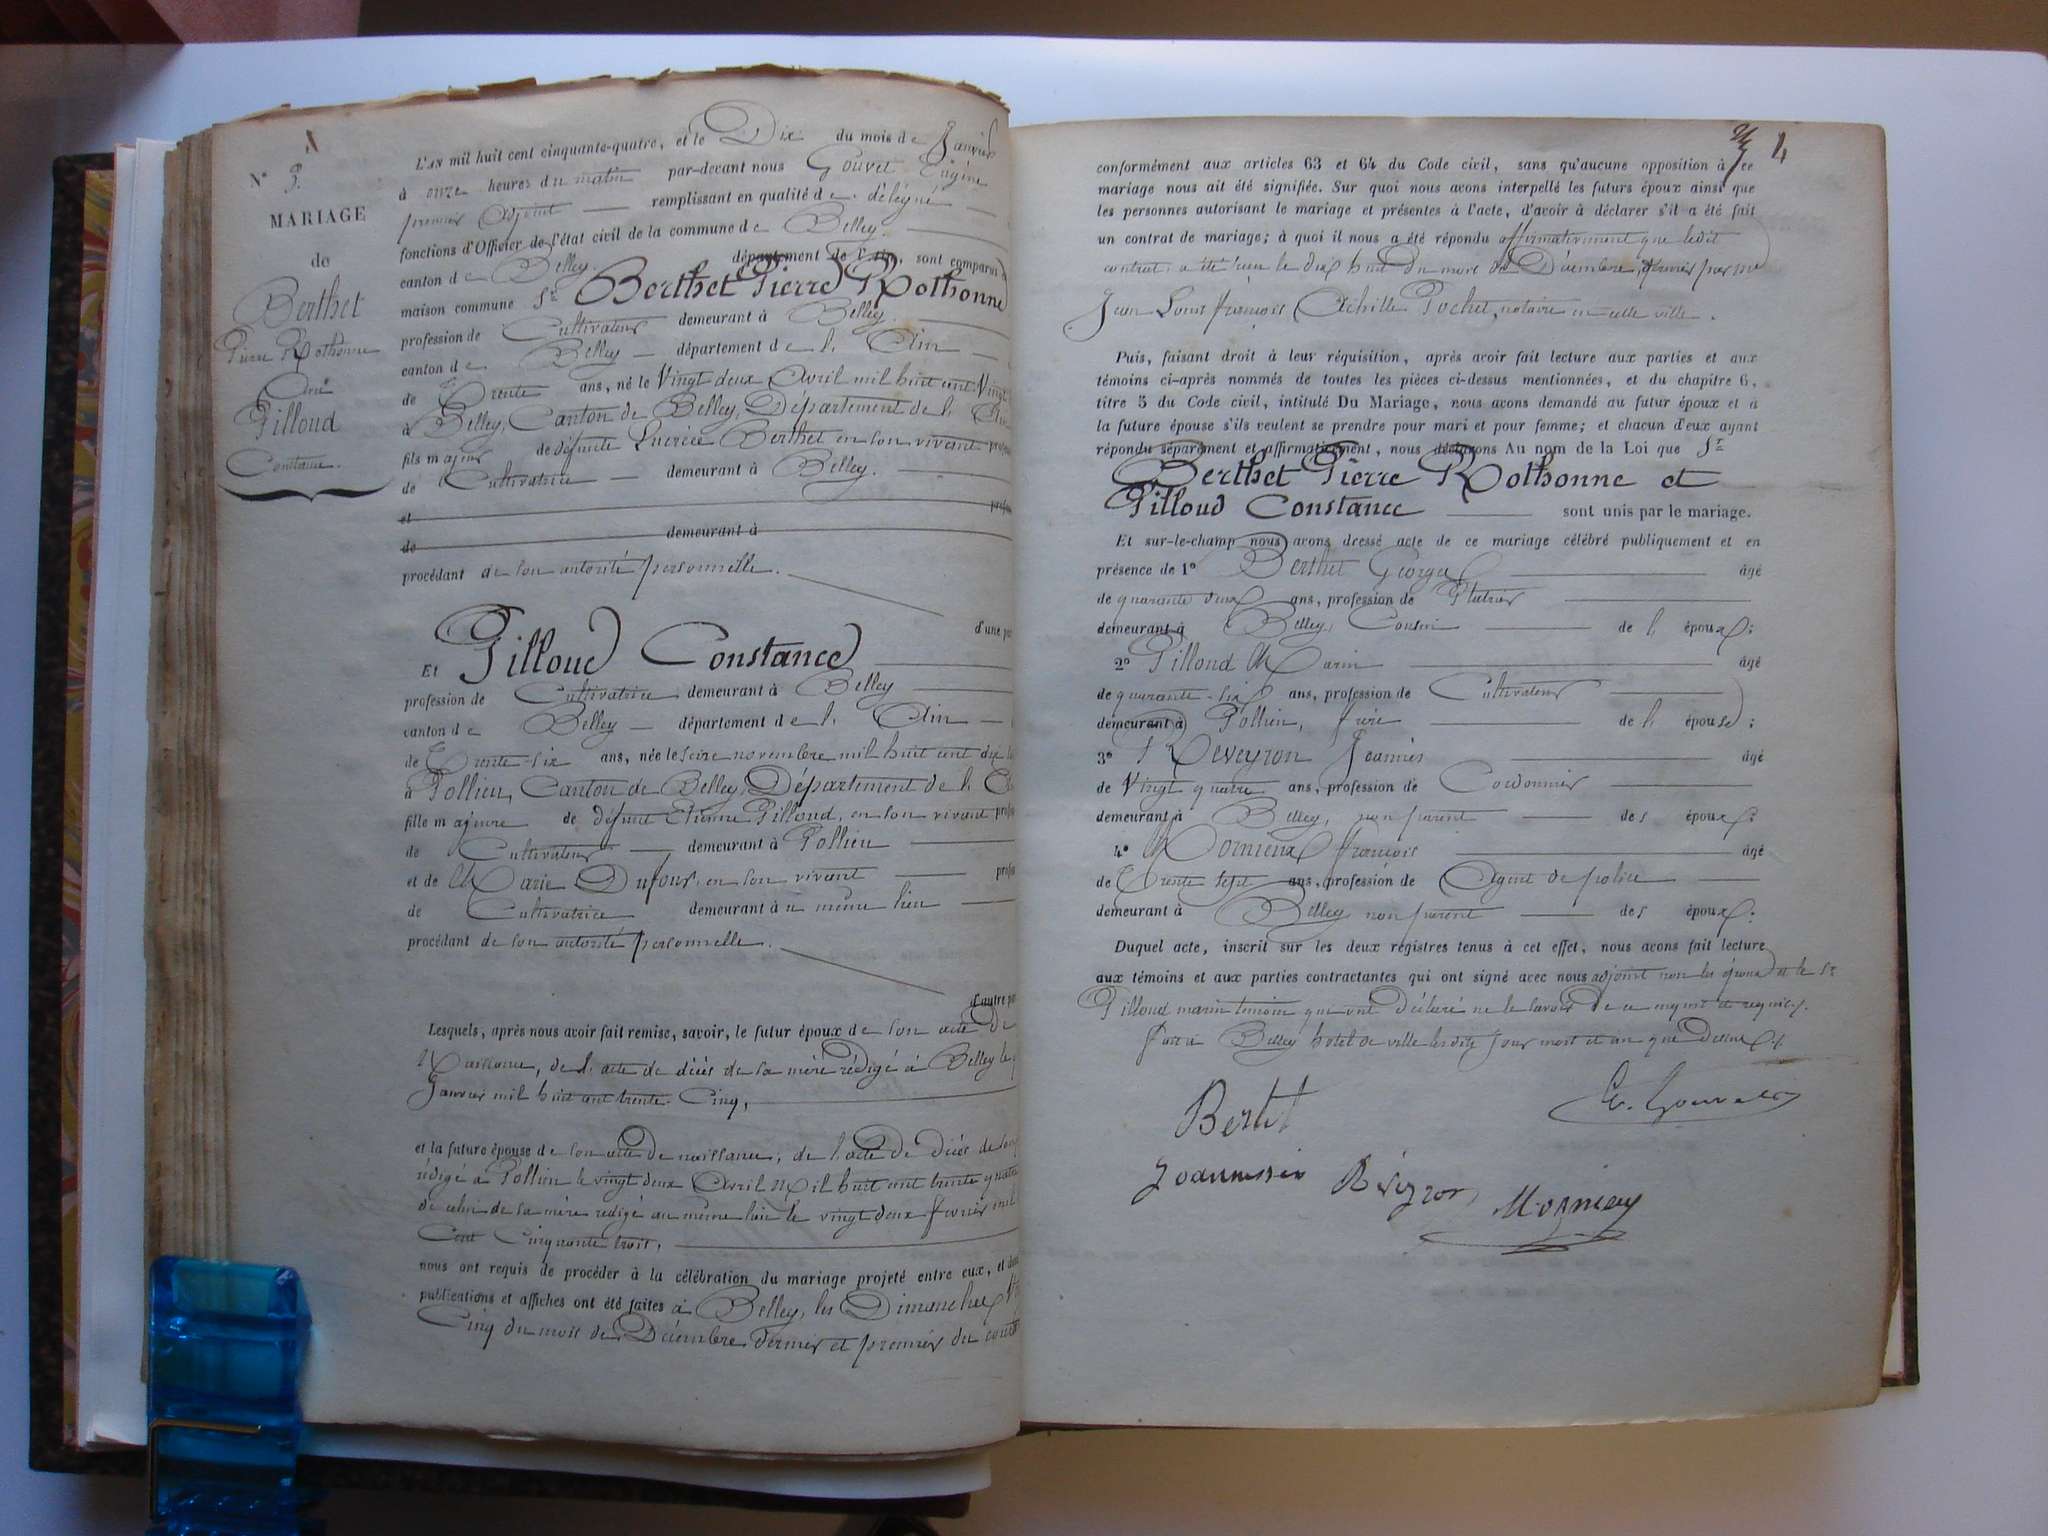 N° 3.
MARIAGE
de
Berthet
Pierre Rothonne
et
Pilloud
Constance.
L'AN mil huit cent cinquante-quatre, et le Dix du mois de Janvier
à onze heures du matin par-devant nous Gouvet Eugène
premier Adjoint remplissant en qualité de délégué
fonctions d'Officier de l'état civil de la commune de Belley.
canton de Belley. département de l'Ain, sont comparus
maison commune Sr Berthet Pierre Rothonne
profession de Cultivateur demeurant à Belley.
canton de Belley département de l'Ain
de Trente ans, né le Vingt deux Avril mil huit cent Vingt
à Belley, Canton de Belley, Département de l'
fils majeur de défunte Lucrèce Berthet en son vivant
de Cultivatrice demeurant à Belley.
et
de demeurant à
procédant de son autorité personnelle.
d'une
Et Pilloud Constance
profession de Cultivatrice demeurant à Belley
canton de Belley département de l'Ain
de Trente-six ans, née le seize novembre mil huit cent dix
à Pollieu, Canton de Belley, Département de l'
fille majeure de défunt Etienne Pilloud, en son vivant
de Cultivateur demeurant à Pollieu
et de Marie Dufour en son vivant
de Cultivatrice demeurant à u même lieu
procédant de son autorité personnelle.
d'autre
Lesquels, après nous avoir fait remise, savoir, le futur époux de son acte de
Naissance, de l'acte de décès de sa mère rédigé à Belley le
Janvier mil huit cent trente-Cinq,
et la future épouse de son acte de naissance, de l'acte de Décès de son
rédigé à Pollieu le vingt deux Avril Mil huit cent trente quatre
de celui de sa mère rédigé au même lieu le vingt deux février mil
Cent Cinquante trois,
nous ont requis de procéder à la célébration du mariage projeté entre eux, et dont
publications et affiches ont été faites à Belley, les Dimanches
Cinq du mois de Décembre dernier et premier du
4
conformément aux articles 63 et 64 du Code civil, sans qu'aucune opposition à ce
mariage nous ait été signifiée. Sur quoi nous avons interpellé les futurs époux ainsi que
les personnes autorisant le mariage et présentes à l'acte, d'avoir à déclarer s'il a été fait
un contrat de mariage; à quoi il nous a été répondu affirmativement que ledit
contrat a été reçu le dix huit du mois de Décembre dernier par me
Jean Louis françois Achille Pochet, notaire en cette ville.
Puis, faisant droit à leur réquisition, après avoir fait lecture aux parties et aux
témoins ci-après nommés de toutes les pièces ci-dessus mentionnées, et du chapitre 6,
titre 5 du Code civil, intitulé Du Mariage, nous avons demandé au futur époux et à
la future épouse s'ils veulent se prendre pour mari et pour femme; et chacun d'eux ayant
répondu séparément et affirmativement, nous déclarons Au nom de la Loi que Sr
Berthet Pierre Rothonne et
Pilloud Constance sont unis par le mariage.
Et sur-le-champ nous avons dressé acte de ce mariage célébré publiquement et en
présence de 1° Berthet Georges âgé
de quarante deux ans, profession de Platrier
demeurant à Belley, Cousin de l'époux;
2° Pilloud Marin âgé
de quarante-six ans, profession de Cultivateur
demeurant à Pollieu, frère de l'épouse;
3° Reveyron Joannès âgé
de Vingt quatre ans, profession de Cordonnier
demeurant à Belley, non parent des époux;
4° Mornieux françois âgé
de Trente sept ans, profession de Agent de police
demeurant à Belley non parent des époux;
Duquel acte, inscrit sur les deux registres tenus à cet effet, nous avons fait lecture
aux témoins et aux parties contractantes qui ont signé avec nous adjoint non les époux et le Sr
Pilloud marin témoin qui ont déclaré ne le savoir de ce enquis et requis.
fait à Belley hotel de ville lesdits jour mois et an que dessus
Bertet
E. Gouvet
Joannessin Réveyron
Mornieux